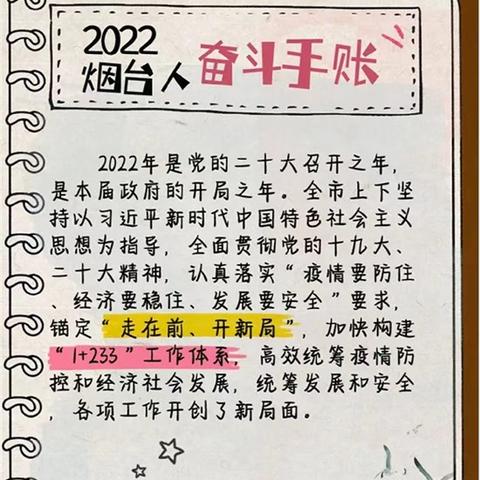 2022
烟台人 奋斗手账
2022年是党的二十大召开之年，
是本届政府的开局之年。全市上下坚
持以习近平新时代中国特色社会主义
思想为指导，全面贯彻党的十九大、
二十大精神，认真落实“疫情要防住
、经济要稳住、发展要安全”要求，
锚定“走在前、开新局”，加快构建
“1+233”工作体系，高效统筹疫情防
控和经济社会发展，统筹发展和安全
，各项工作开创了新局面。